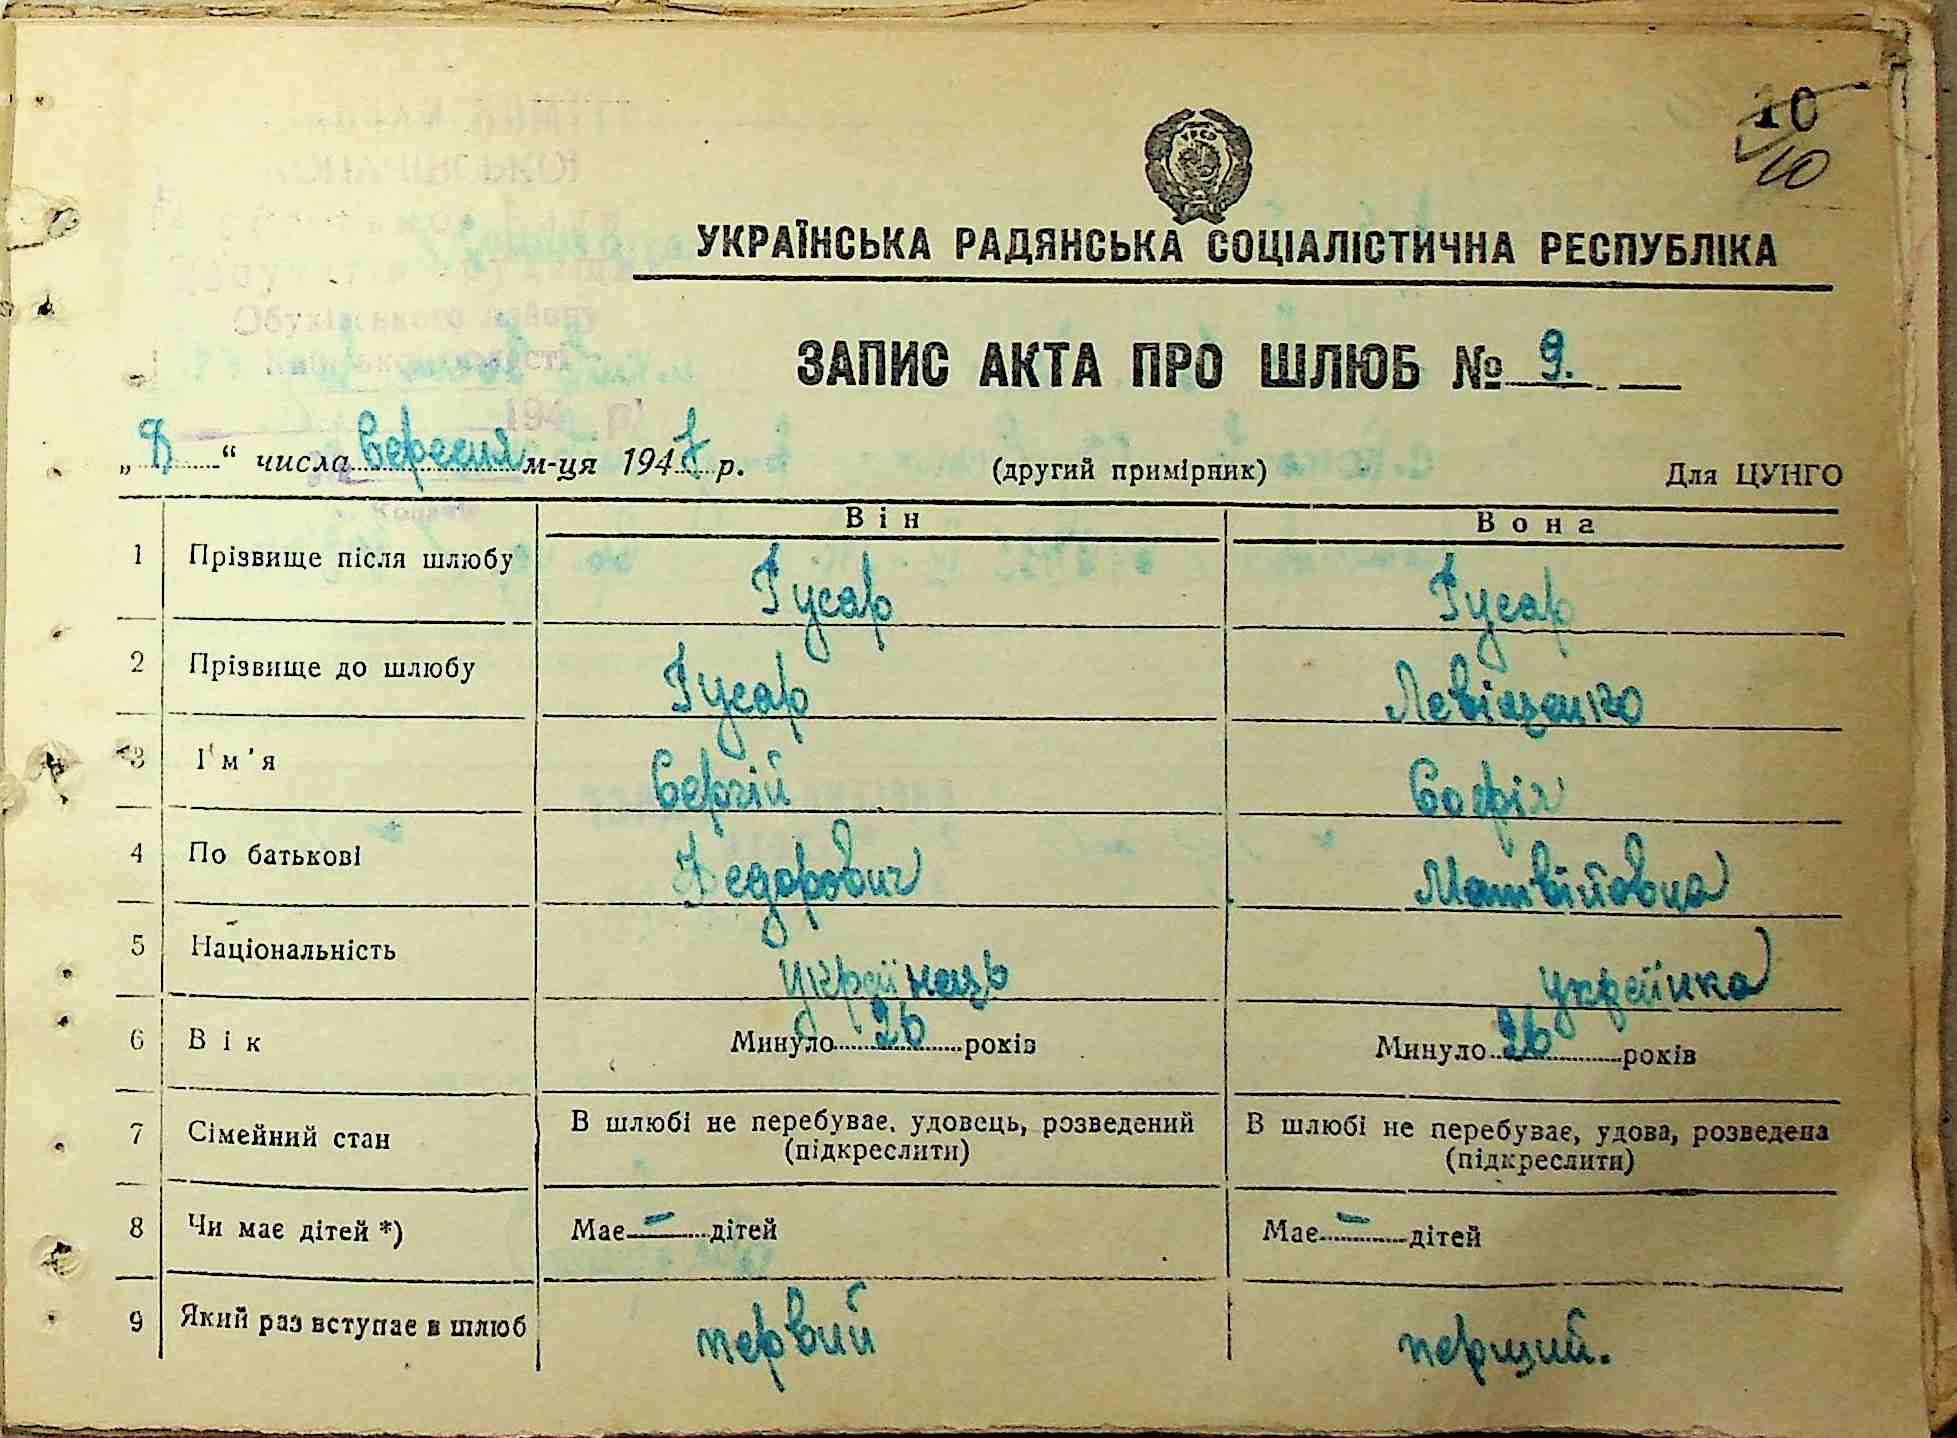 10
10
УРСР
УКРАЇНСЬКА РАДЯНСЬКА СОЦІАЛІСТИЧНА РЕСПУБЛІКА
ЗАПИС АКТА ПРО ШЛЮБ № 9.
„8“ числа Вересня м-ця 1947 р. (другий примірник) Для ЦУНГО
Він Вона
1 Прізвище після шлюбу Гусар Гусар
2 Прізвище до шлюбу Гусар
3 Ім'я Сергій Софія
4 По батькові Федорович Матвійовна
5 Національність українець українка
6 Вік Минуло 26 років Минуло 26 років
7 Сімейний стан В шлюбі не перебуває, удовець, розведений В шлюбі не перебуває, удова, розведена
(підкреслити) (підкреслити)
8 Чи має дітей *) Має — дітей Має — дітей
9 Який раз вступає в шлюб первий перший.